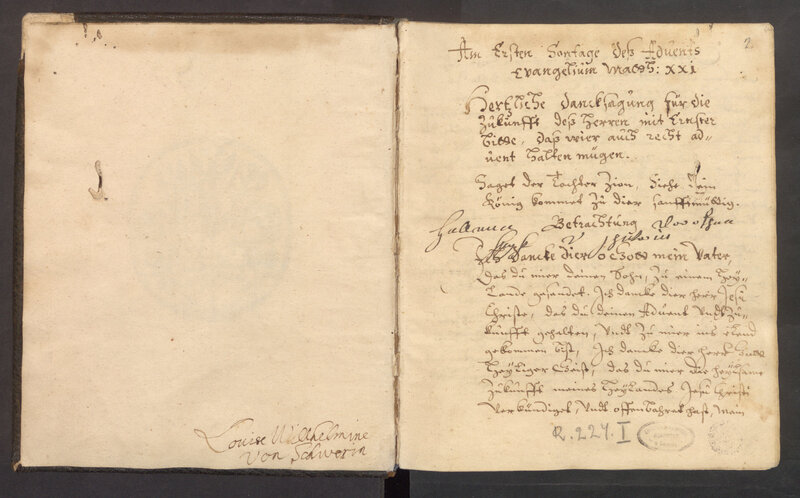 Louise Wilhelmine
von Schwerin
2.
Am Ersten Sontage deß Advents
Evangelium Matth: XXI
Hertzliche dancksagung für die
Zukunfft deß Herren mit Ernster
bitte, daß wier auch recht ad-
vent halten mügen.
Saget der Tochter Zion, Siehe Dein
König kommet zu dier sanfftmüttig.
Betrachtung
Ich dancke dier o Gott mein Vater,
das du mier deinen Sohn, zu einem Hey-
Lande gesandet. Ich dancke dier Herr Jesu
Christe, das du deinen Advent undt Zu-
kunfft gehalten, undt zu mier ins elend
gekommen bist, Ich dancke dier Herr Gott
Heyliger Geist, das du mier die heylsame
Zukunfft meines Heylandes Jesu Christi
verkündiget, undt offenbahret hast, Mein
R. 224. I